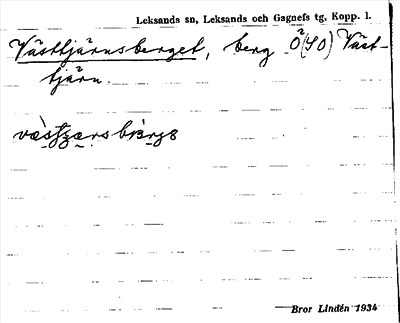 Leksands sn, Leksands och Gagnefs tg, Kopp. l.
Västtjärnsberget, berg Ö (SO) Väst-
tjärn.
Bror Lindén 1934